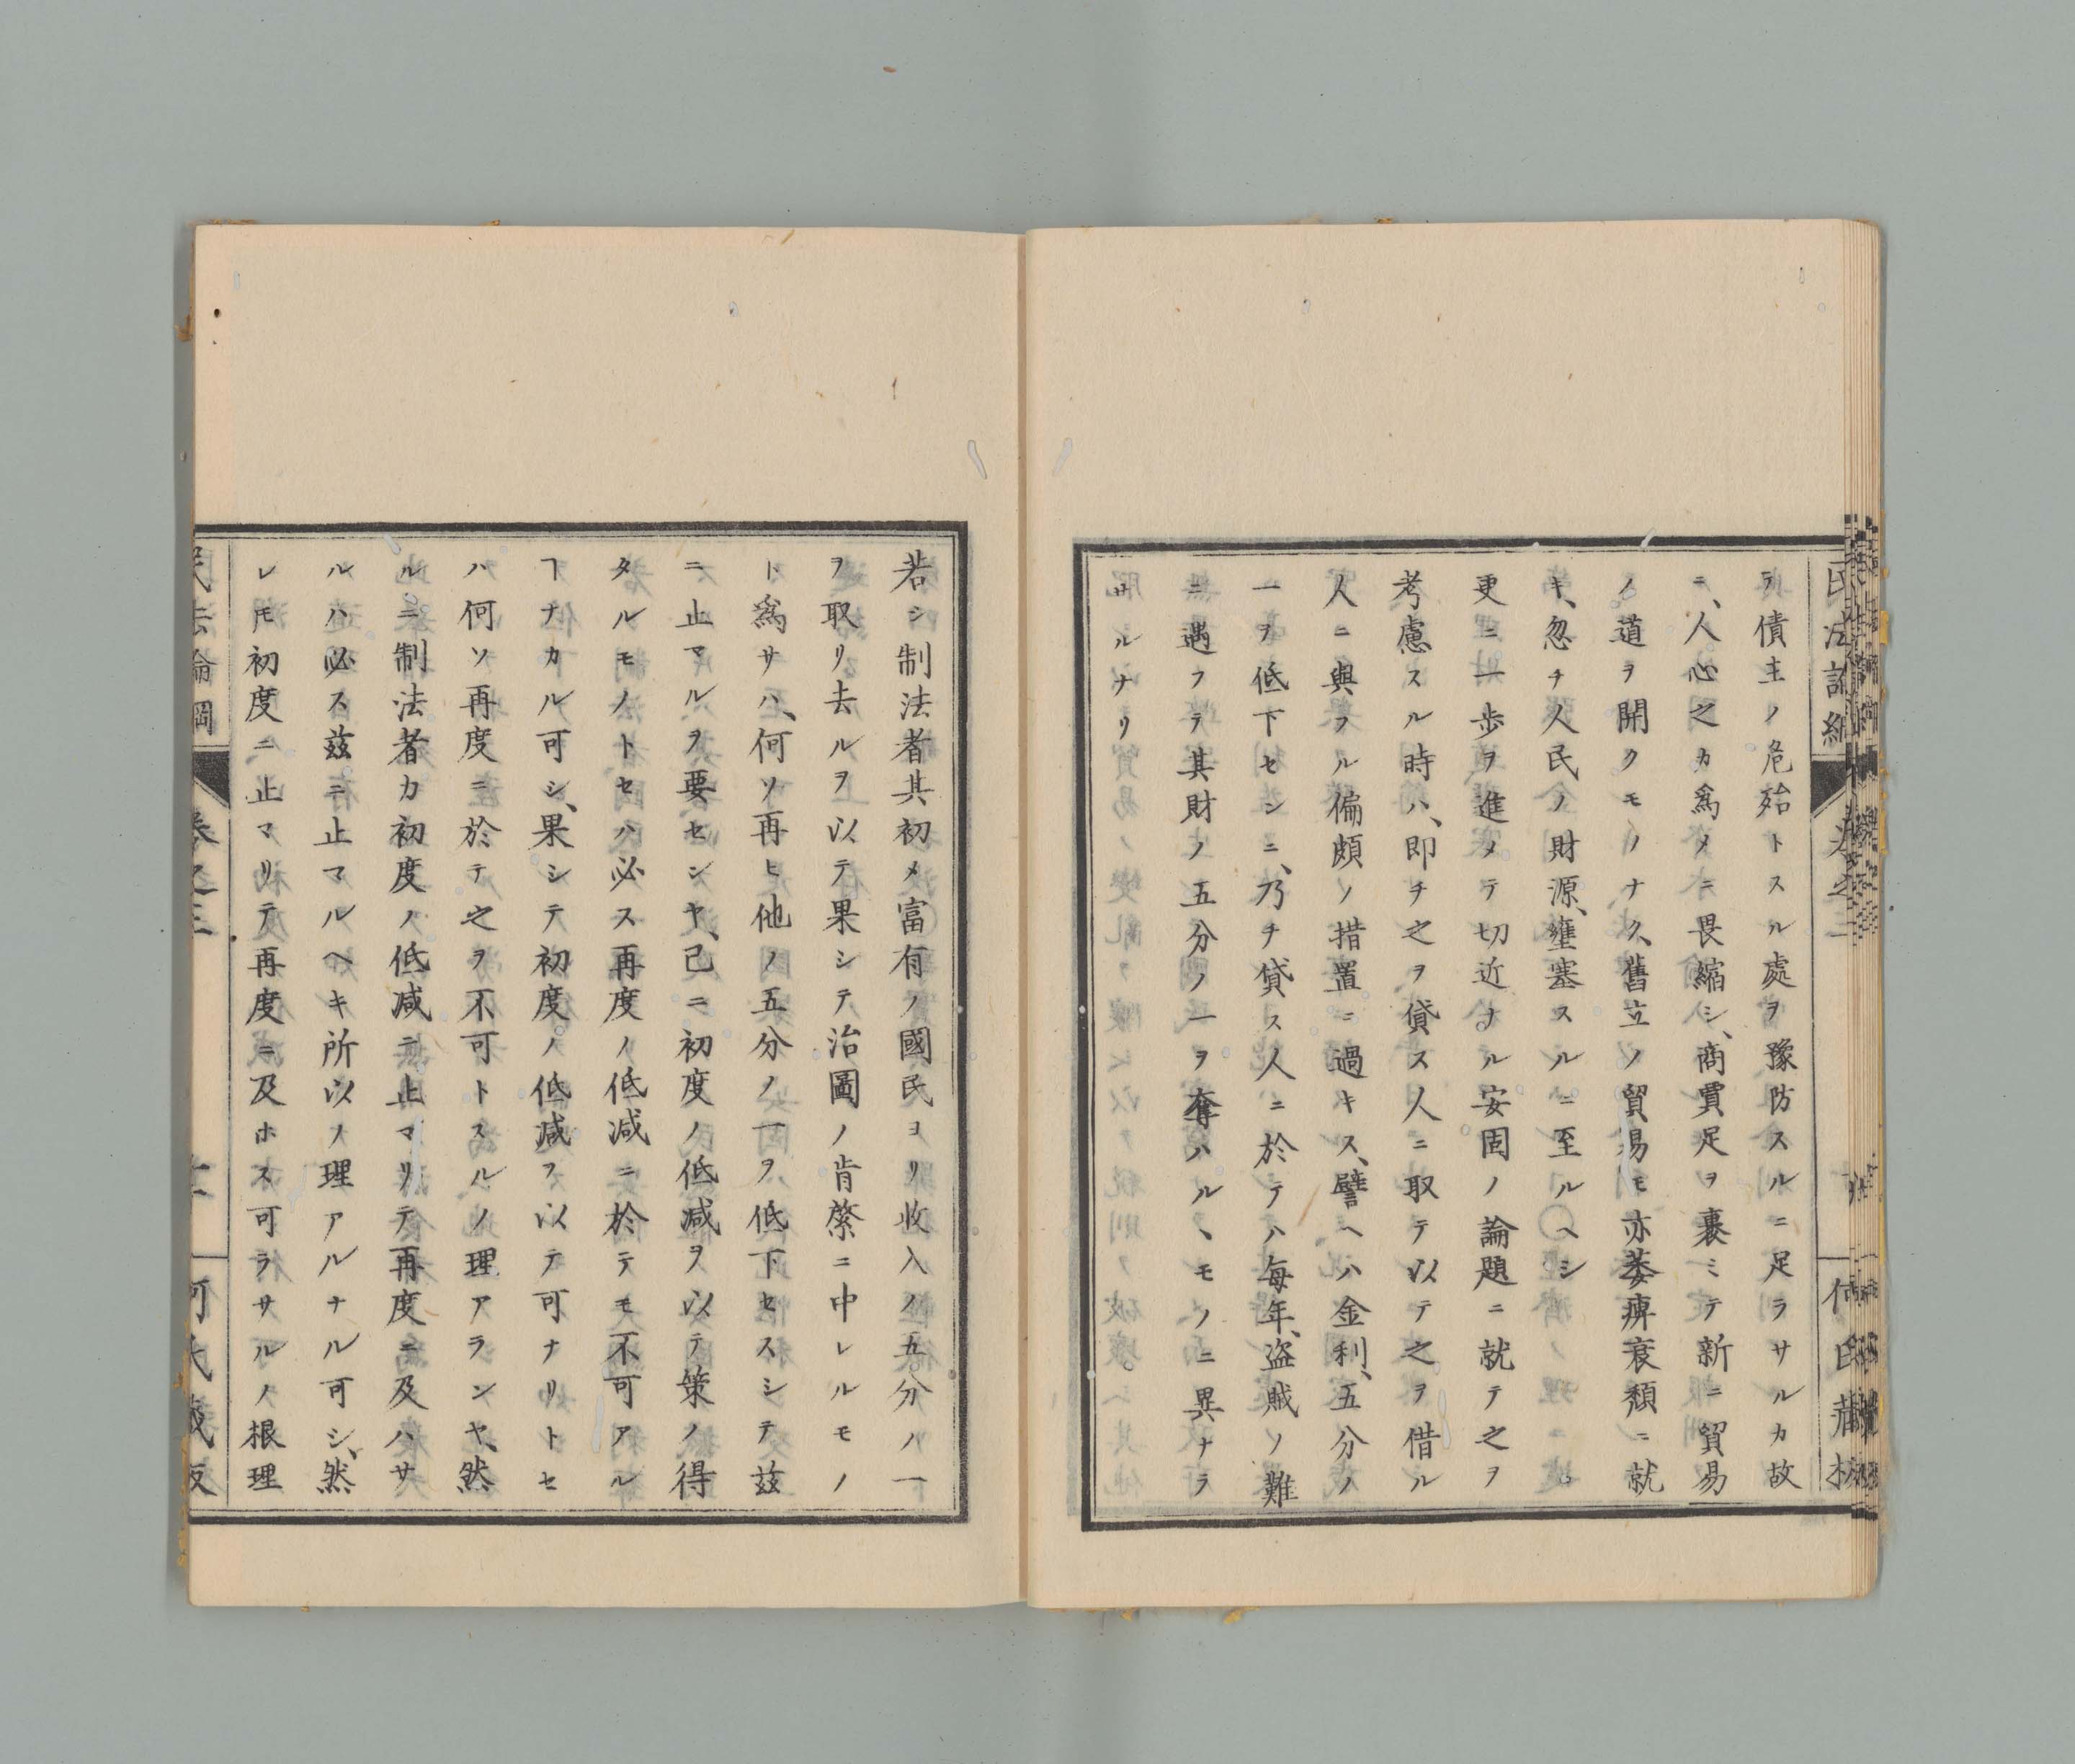 テ債主ノ危殆トスル處ヲ豫防スルニ足ラサルカ故
ニ、人心之カ爲メニ畏縮シ、商賈足ヲ裹ミテ新ニ貿易
ノ道ヲ開クモノナク、舊立ノ貿易モ亦萎痺衰頽ニ就
キ、忽チ人民ノ財源、壅塞スルニ至ルヘシ
更ニ一歩ヲ進メテ切近ナル安固ノ論題ニ就テ之ヲ
考慮スル時ハ、即チ之ヲ貸ス人ニ取テ以テ之ヲ借ル
人ニ與フル偏頗ノ措置ニ過キス、譬ヘハ金利、五分ノ
一ヲ低下センニ、乃チ貸ス人ニ於テハ毎年、盗賊ノ難
ニ遇フテ其財ノ五分ノ一ヲ奪ハルヽモノニ異ナラ
サルナリ
若シ制法者其初メ富有ノ國民ヨリ收入ノ五分ノ一
ヲ取リ去ルヲ以テ果シテ治圖ノ肯綮ニ中レルモノ
ト爲サハ、何ソ再ヒ他ノ五分ノ一ヲ低下セスシテ茲
ニ止マルヲ要センヤ、已ニ初度ノ低減ヲ以テ策ノ得
タルモノトセハ必ス再度ノ低減ニ於テモ不可アル
ヿナカル可シ、果シテ初度ノ低減ヲ以テ可ナリトセ
ハ何ソ再度ニ於テ之ヲ不可トスルノ理アランヤ、然
ルニ制法者カ初度ノ低減ニ止マリテ再度ニ及ハサ
ルハ必ス茲ニ止マルヘキ所以ノ理アルナル可シ、然
レモ初度ニ止マリテ再度ニ及ホス可ラサルノ根理
民法論綱 卷之三 何氏藏板